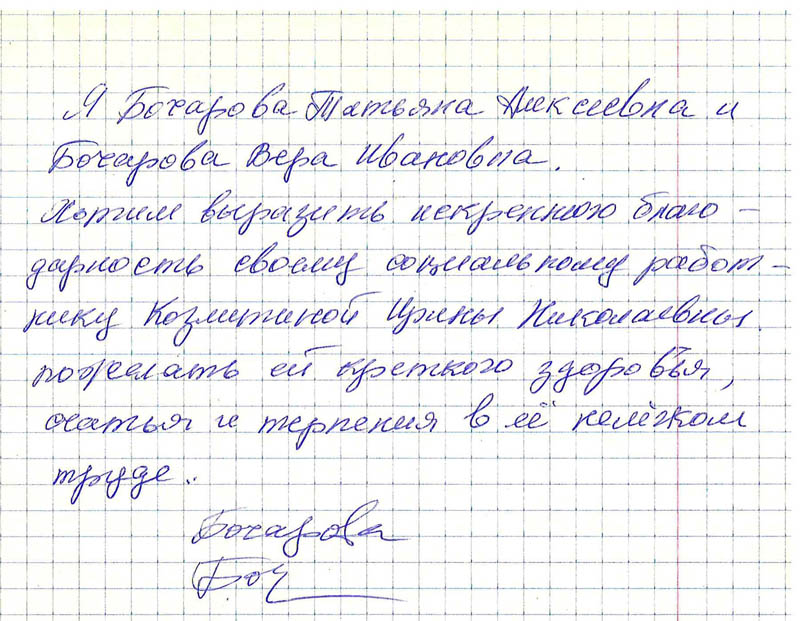 Я Бочарова Татьяна Алексеевна и
Бочарова Вера Ивановна.
Хотим выразить искреннюю благо -
дарность своему социальному работ -
нику Козлитиной Ирины Николаевны.
пожелать ей крепкого здоровья,
счатья и терпения в её нелёгком
труде.
Бочарова
Боч